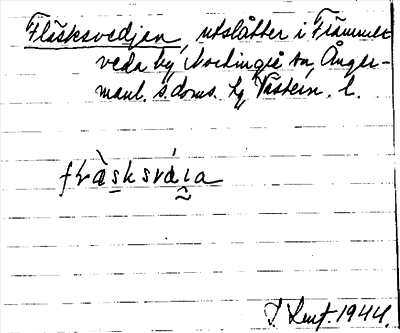 Fläsksvedjan, utslåtter i Främmer
veda by Nordingrå sn, Ånger-
manl. s. doms. hg Västern. l.
fräsksvàɩa
1944.